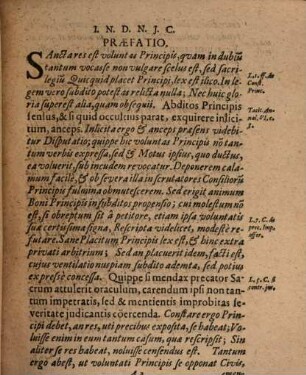 I. N. D. N. J. C.
PRÆFATIO.
SAncta res est voluntas Principis, qvam in dubiũ
tantum vocasse non vulgare scelus est, sed sacri-
legiũ Qvicqvid placet Principi, lex est ilico. In le-
gem vero subdito potestas relicta nulla; Nec huic glo-
ria superest alia, qvam obseqvii. Abditos Principis
sensus, & si qvid occultius parat, exqvirere inlici-
tum, anceps. Inlicita ergo & anceps præsens videbi-
tur Disputatio; qvippe hic voluntas Principis nō tan-
tum verbis expressa, sed & Motus ipsius, qvo ductus,
ea volverit, sub incudem revocatur. Deponerem ca-
lamum facilè, & ob severa illa in scrutatores Consiliorū
Principis fulmina obmutescerem. Sed erigit animum
Boni Principis in subditos propensio; cui molestum nō
est, si obreptum sit à petitore, etiam ipsa voluntatis
suæ certissima signa, Rescripta videlicet, modestè re-
futare. Sane Placitum Principis lex est, & hinc extra
privati arbitrium; Sed an placuerit idem, facti est,
cujus ventilatio nuspiam subdito ademta, sed potius
expresse concessa. Qvippe si mendax precator Sa-
crum attulerit oraculum, carendum ipsi non tan-
tum impetratis, sed & mentientis improbitas se-
veritate judicantis cöercenda. Constare ergo Prin-
cipi debet, an res, uti precibus exposita, se habeat; Vo-
luisse enim in eum tantum casum, qva rescripsit; Sin
aliter se res habeat, noluisse censendus est. Tantum
ergo abest, ut voluntati Principis se opponat Civis,
L. 1. ff. de
Const.
Princ.
Tacit. An-
nal. VI. c.
8.
L. 7. C. de
prec. Imp.
offer.
L. 5. C. si
contr. jus.